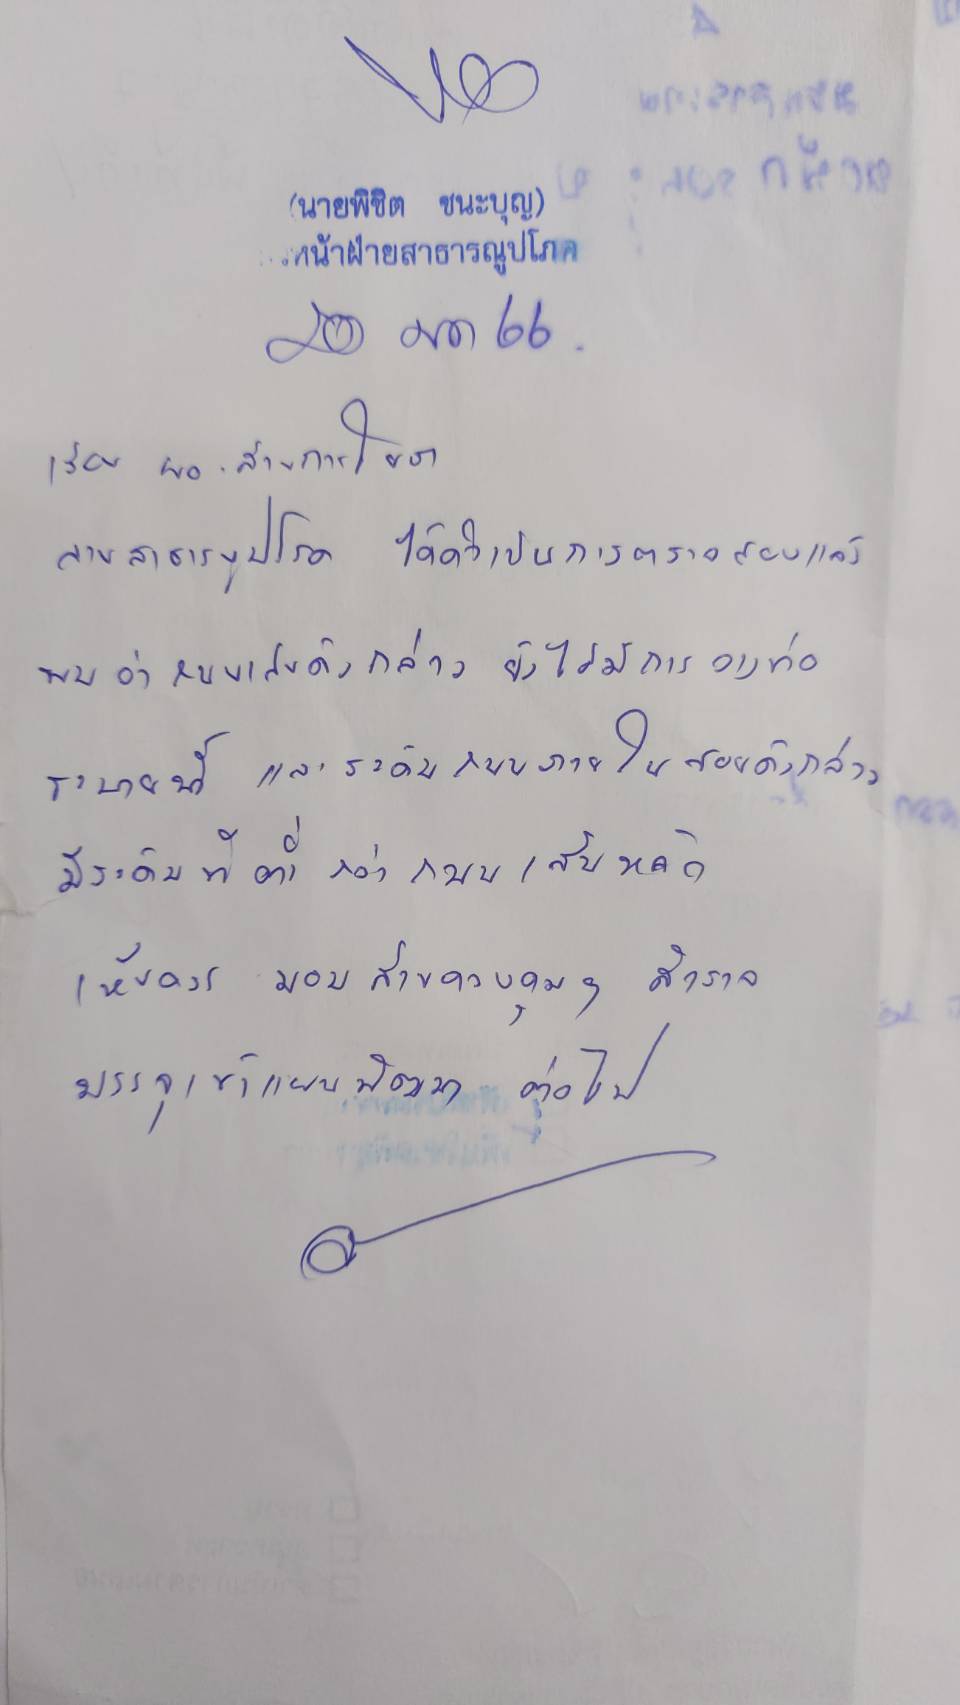 (นายพิชิต ชนะบุญ)
หน้าฝ่ายสาธารณูปโภค
66
เรียน ผอ.ส่วนการโยธา
งานสาธารณูปโภค ได้ดำเนินการตรวจสอบแล้ว
พบว่า ถนนเส้นดังกล่าว ยังไม่มีการวางท่อ
ระบายน้ำ และ ระดับถนนภายในซอยดังกล่าว
มีระดับที่ต่ำ กว่า ถนนเส้นหลัก
เห็นควร มอบ ควบคุมฯ สำรวจ
บรรจุเข้าแผนพัฒนา ต่อไป